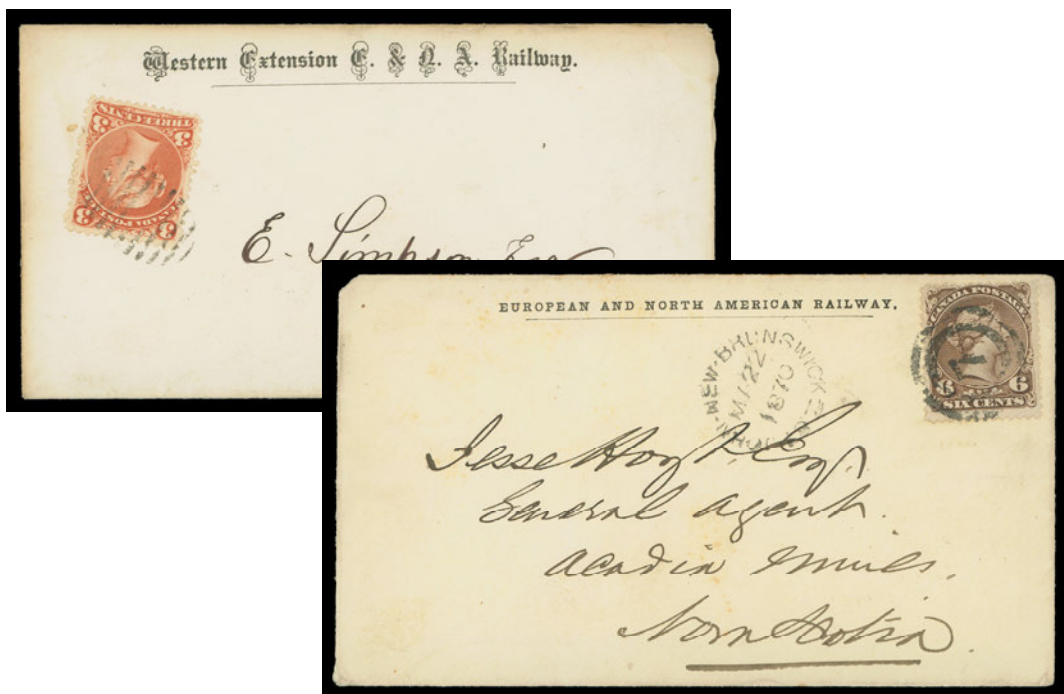 Western Extension E. & N. A. Railway.
THREE CENTS
3 3
CANADA POSTAGE
3 3
E. Simpson Esq
EUROPEAN AND NORTH AMERICAN RAILWAY.
CANADA POSTAGE
6 6
SIX CENTS
NEW-BRUNSWICK
22
1870
Jesse Hoyt, Esq.
General Agent.
Acadia Mines.
Nova Scotia